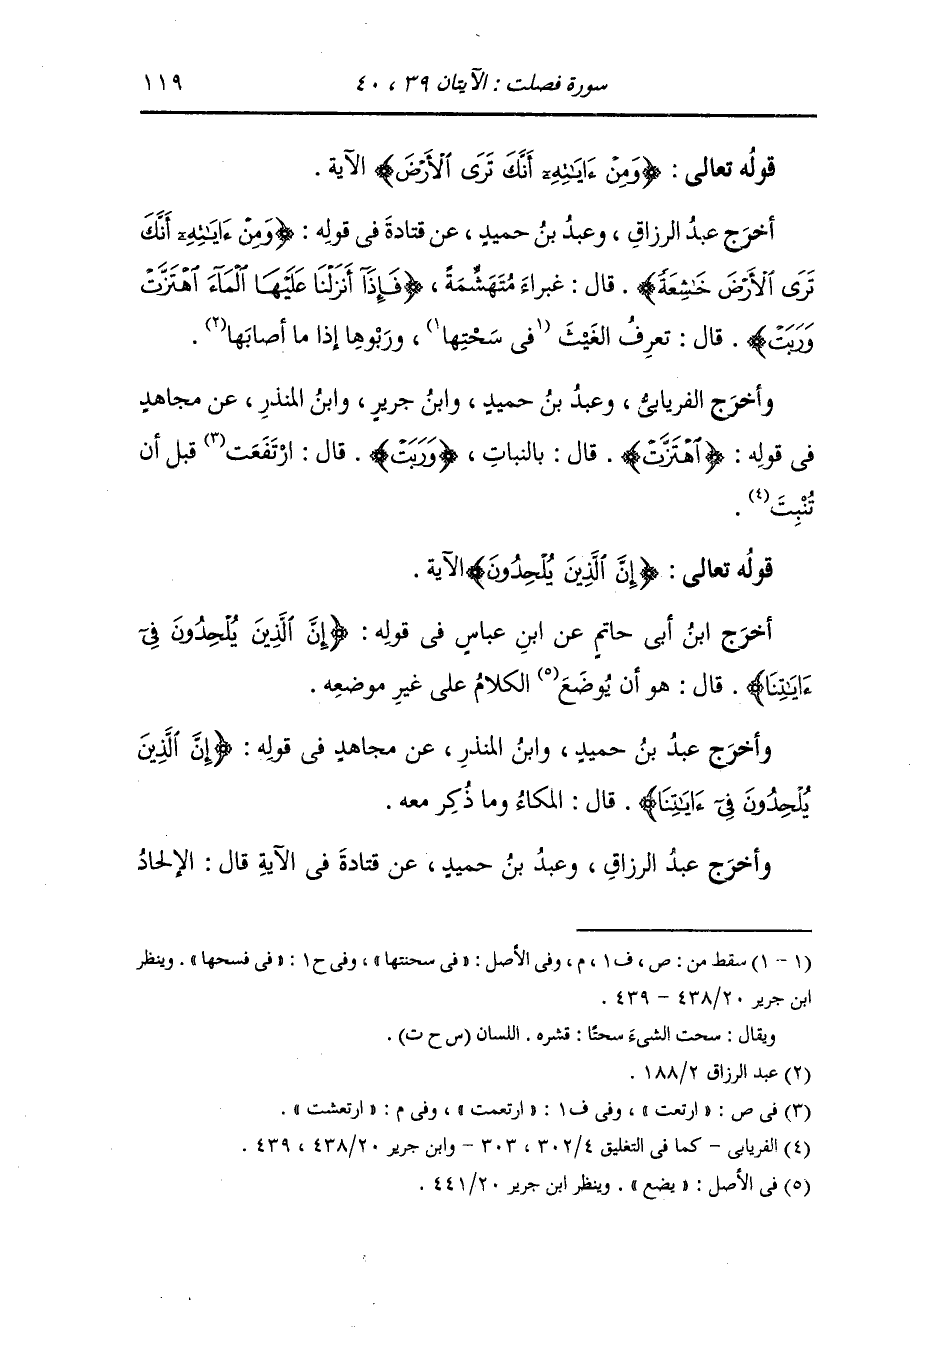 سورة فصلت : الآيتان ٣٩ ، ٤٠ ١١٩
قولُه تعالى : ﴿وَمِنْ ءَايَـٰتِهِۦٓ أَنَّكَ تَرَى ٱلْأَرْضَ﴾ الآية .
أخرَج عبدُ الرزاقِ ، وعبدُ بنُ حميدٍ ، عن قتادةَ فى قولِه : ﴿وَمِنْ ءَايَـٰتِهِۦٓ أَنَّكَ
تَرَى ٱلْأَرْضَ خَـٰشِعَةً﴾ . قال : غبراءَ مُتَهَشِّمَةً ، ﴿فَإِذَآ أَنزَلْنَا عَلَيْهَا ٱلْمَآءَ ٱهْتَزَّتْ
وَرَبَتْ﴾ . قال : تعرِفُ الغَيْثَ (١فى سَحْتِها١) ، ورَبْوِها إذا ما أصابَها(٢) .
وأخرَج الفريابىُّ ، وعبدُ بنُ حميدٍ ، وابنُ جريرٍ ، وابنُ المنذرِ ، عن مجاهدٍ
فى قولِه : ﴿ٱهْتَزَّتْ﴾ . قال : بالنباتِ ، ﴿وَرَبَتْ﴾ . قال : ارْتَفَعَت(٣) قبل أن
تُنْبِتَ(٤) .
قولُه تعالى : ﴿إِنَّ ٱلَّذِينَ يُلْحِدُونَ﴾الآية .
أخرَج ابنُ أبى حاتمٍ عن ابنِ عباسٍ فى قولِه : ﴿إِنَّ ٱلَّذِينَ يُلْحِدُونَ فِىٓ
ءَايَـٰتِنَا﴾ . قال : هو أن يُوضَعَ(٥) الكلامُ على غيرِ موضعِه .
وأخرَج عبدُ بنُ حميدٍ ، وابنُ المنذرِ ، عن مجاهدٍ فى قولِه : ﴿إِنَّ ٱلَّذِينَ
يُلْحِدُونَ فِىٓ ءَايَـٰتِنَا﴾ . قال : المكاءُ وما ذُكِر معه .
وأخرَج عبدُ الرزاقِ ، وعبدُ بنُ حميدٍ ، عن قتادةَ فى الآيةِ قال : الإلحادُ
(١ - ١) سقط من : ص ، ف١ ، م ، وفى الأصل : « فى سحنتها » ، وفى ح١ : « فى فسحها » . وينظر
ابن جرير ٢٠/ ٤٣٨ - ٤٣٩ .
ويقال : سحت الشىءَ سحتًا : قشره . اللسان (س ح ت) .
(٢) عبد الرزاق ٢/ ١٨٨ .
(٣) فى ص : « ارتعت » ، وفى ف١ : « ارتعمت » ، وفى م : « ارتعشت » .
(٤) الفريابى - كما فى التغليق ٤/ ٣٠٢ ، ٣٠٣ - وابن جرير ٢٠/ ٤٣٨ ، ٤٣٩ .
(٥) فى الأصل : « يضع » . وينظر ابن جرير ٢٠/ ٤٤١ .